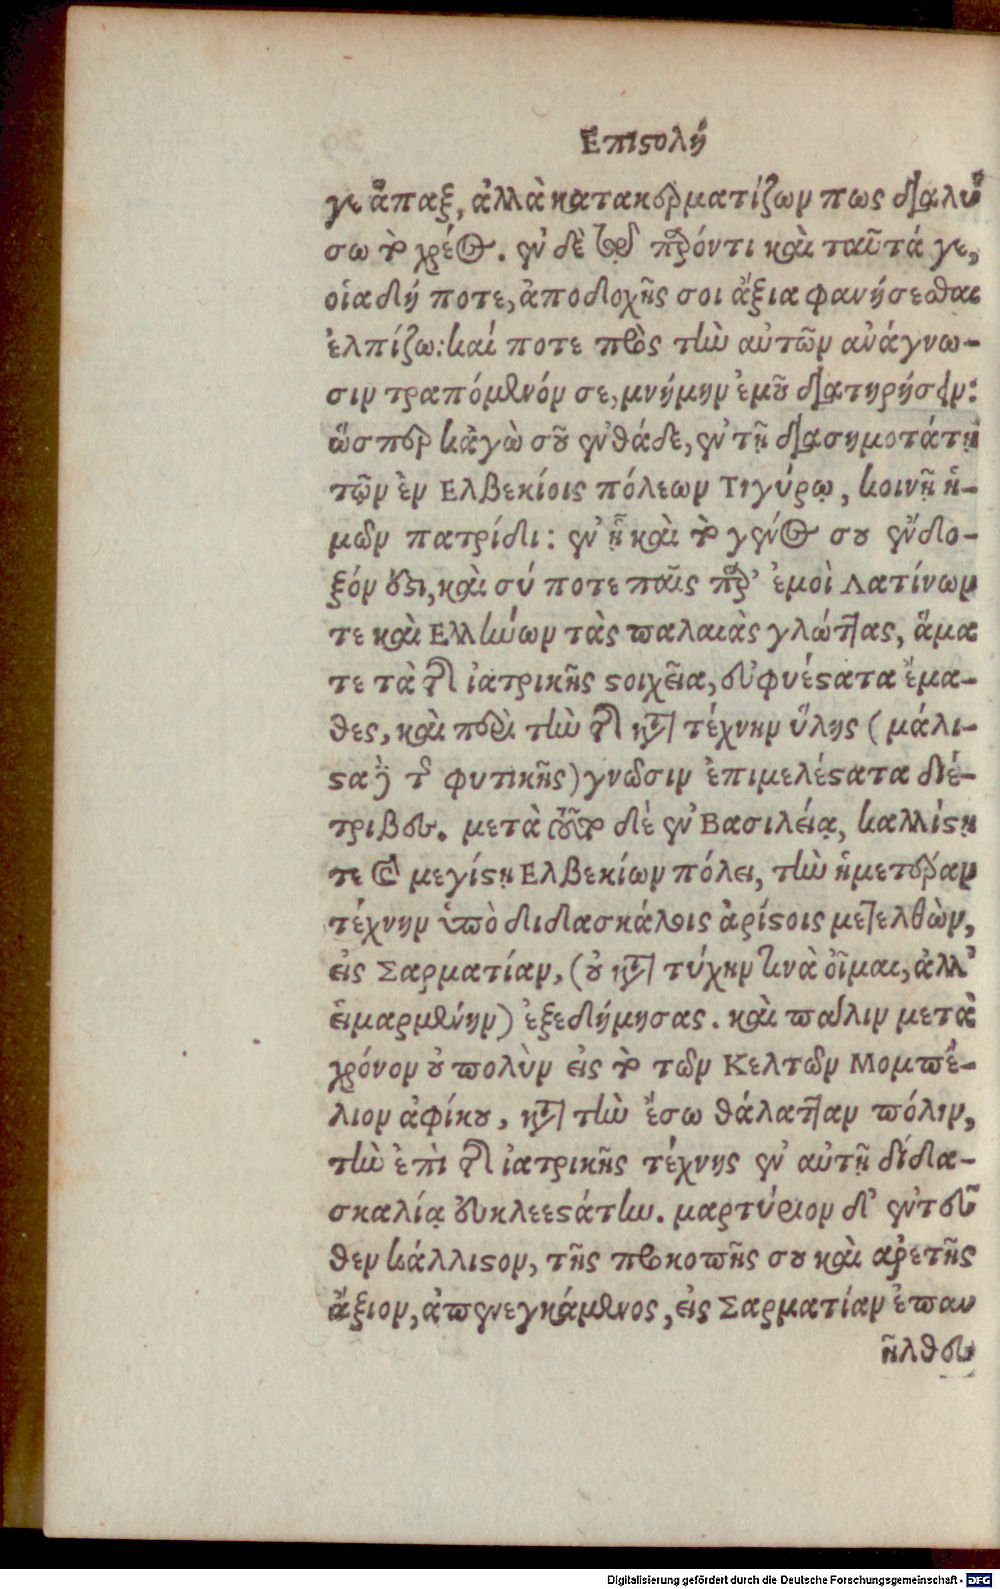 Επιστολή
γε ἅπαξ, ἀλλὰ κατακερματίζων πως διαλύ-
σω τὸ χρέος. ἐν δὲ τῷ παρόντι καὶ ταῦτά γε,
οἱαδή ποτε, ἀποδοχῆς σοι ἄξια φανήσεσθαι
ἐλπίζω: καί ποτε πρὸς τὴν αὐτῶν ἀνάγνω-
σιν τραπόμενόν σε, μνήμην ἐμοῦ διατηρήσειν:
ὥσπερ κᾀγὼ σοῦ ἐνθάδε, ἐν τῇ διασημοτάτῃ
τῶν ἐν Ελβεκίοις πόλεων Τιγύρῳ, κοινῇ ἡ-
μῶν πατρίδι: ἐν ᾗ καὶ τὸ γένος σου ἔνδο-
ξόν ἐστι, καὶ σύ ποτε παῖς παρ' ἐμοὶ Λατίνων
τε καὶ Ελλήνων τὰς παλαιὰς γλώττας, ἅμα
τε τὰ τῆς ἰατρικῆς στοιχεῖα, εὐφυέστατα ἔμα-
θες, καὶ περὶ τὴν τῆς κατὰ τέχνην ὕλης (μάλι-
στα δὲ τῆς φυτικῆς) γνῶσιν ἐπιμελέστατα διέ-
τριβες. μετὰ ταῦτα δὲ ἐν Βασιλείᾳ, καλλίστῃ
τε καὶ μεγίστῃ Ελβεκίων πόλει, τὴν ἡμετέραν
τέχνην ὑπὸ διδασκάλοις ἀρίστοις μετελθὼν,
εἰς Σαρματίαν, (οὐ κατὰ τύχην τινὰ οἶμαι, ἀλλ'
εἱμαρμένην) ἐξεδήμησας. καὶ πάλιν μετὰ
χρόνον οὐ πολὺν εἰς τὸ τῶν Κελτῶν Μομπέ-
λιον ἀφίκου, κατὰ τὴν ἔσω θάλατταν πόλιν,
τὴν ἐπὶ τῆς ἰατρικῆς τέχνης ἐν αὐτῇ διδα-
σκαλίᾳ εὐκλεεστάτην. μαρτύριον δ' ἐντεῦ-
θεν κάλλιστον, τῆς προκοπῆς σου καὶ ἀρετῆς
ἄξιον, ἀπενεγκάμενος, εἰς Σαρματίαν ἐπαν
ῆλθες
Digitalisierung gefördert durch die Deutsche Forschungsgemeinschaft - DFG